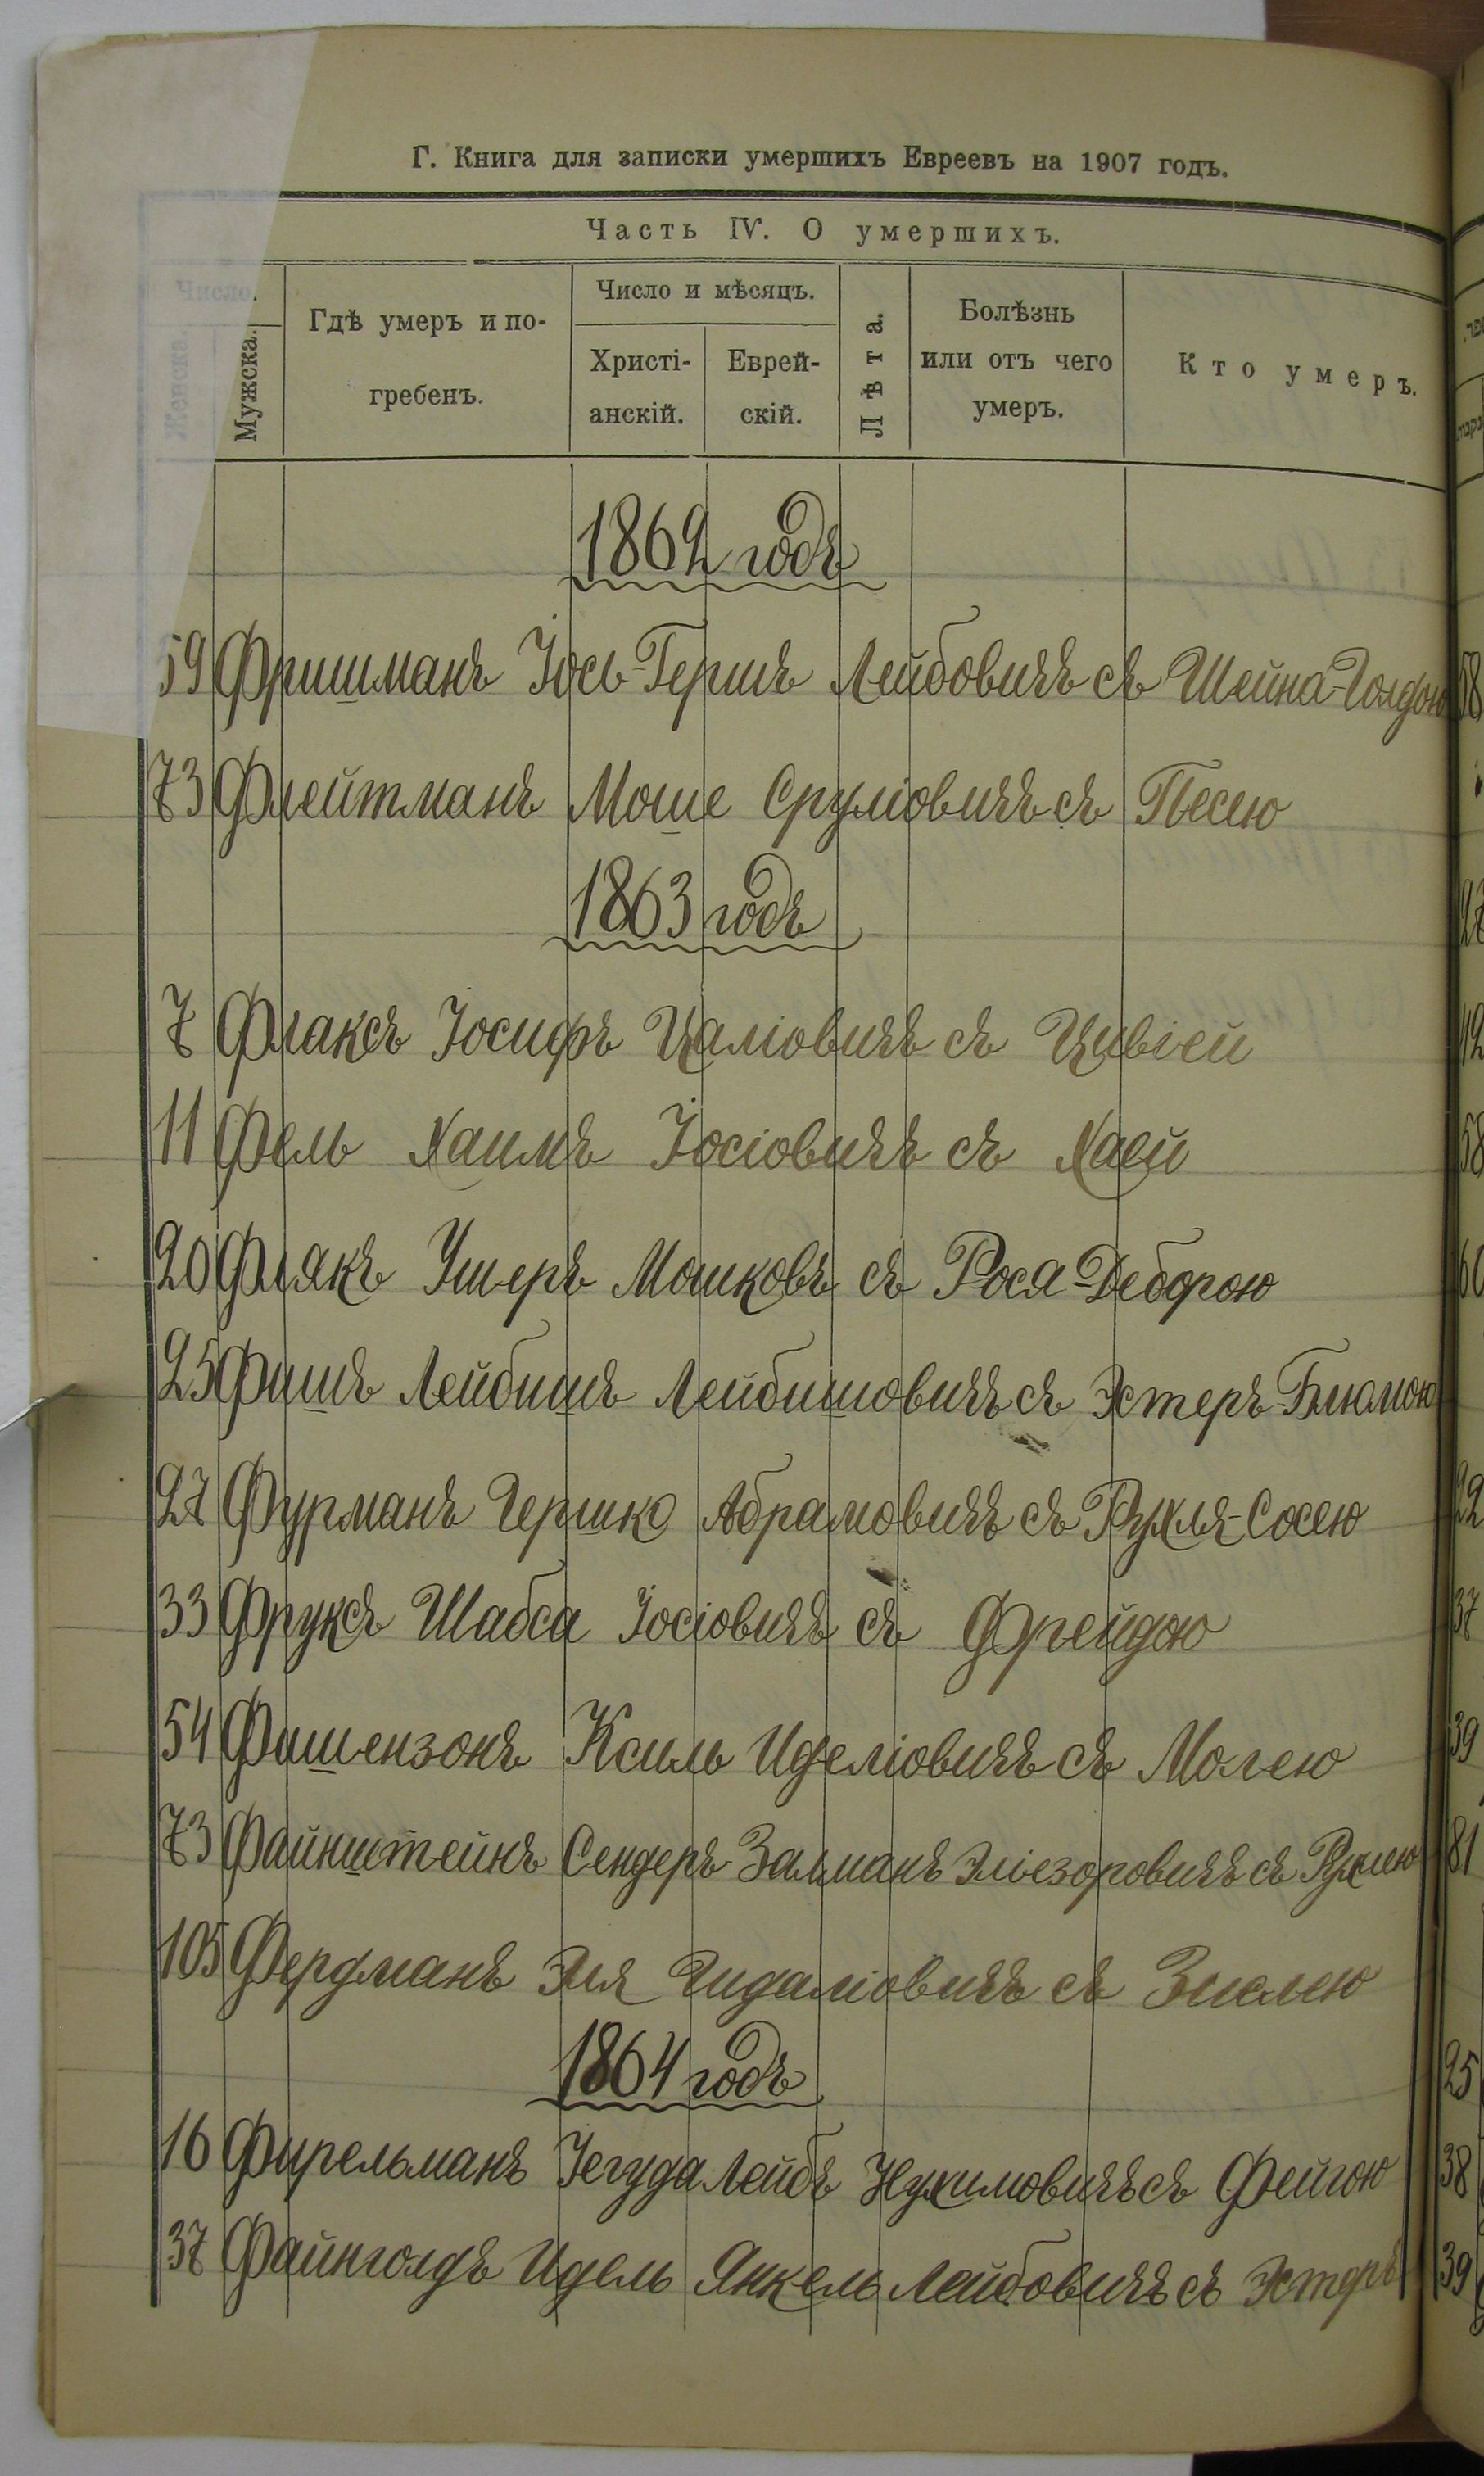 Г. Книга для записки умершихъ Евреевъ на 1907 годъ.
Часть IV. О умершихъ.
Число.
Женска.
Мужска.
Гдѣ умеръ и по-
гребенъ.
Число и мѣсяцъ.
Христі-
анскій.
Еврей-
скій.
Лѣта.
Болѣзнь
или отъ чего
умеръ.
Кто умеръ.
1862 годъ
59 Фришманъ Іось-Гершъ Лейбовичъ съ Шейна-Голдою
73 Флейтманъ Моше Сруліовичъ съ Песею
1863 годъ
7 Флаксъ Іосифъ Цаліовичъ съ Цивіей
11 Фель Хаимъ Іосіовичъ съ Хаей
20 Флякъ Ушеръ Мошковъ съ Рося-Деборою
25 Фишъ Лейбишъ Лейбишовичъ съ Эстеръ-Блюмою
27 Фурманъ Гершко Абрамовичъ съ Рухля-Сосею
33 Фруксъ Шабса Іосіовичъ съ Фрейдою
54 Фашензонъ Ксиль Иделіовичъ съ Молею
73 Файнштейнъ Сендеръ-Залманъ Эліезоровичъ съ Рухлею
105 Фердманъ Эля Гидаліовичъ съ Зислею
1864 годъ
16 Фирельманъ Іегуда Лейбъ Нухимовичъ съ Фейгою
37 Файнголдъ Идель Янкель Лейбовичъ съ Эстеръ